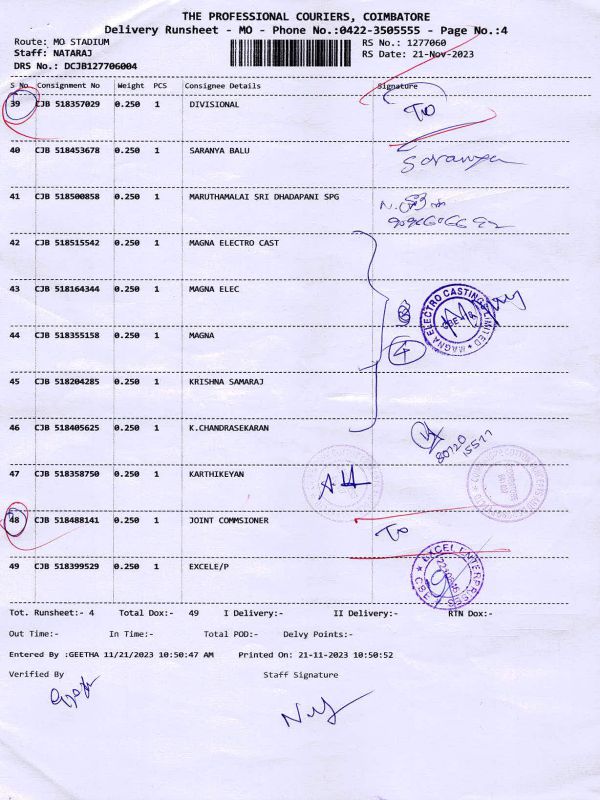 THE PROFESSIONAL COURIERS, COIMBATORE
Delivery Runsheet - MO - Phone No.:0422-3505555 - Page No.:4
Route: MO STADIUM RS No.: 1277060
Staff: NATARAJ RS Date: 21-Nov-2023
DRS No.: DCJB127706004
S No Consignment No Weight PCS Consignee Details Signature
39 CJB 518357029 0.250 1 DIVISIONAL
40 CJB 518453678 0.250 1 SARANYA BALU Saranya
41 CJB 518500858 0.250 1 MARUTHAMALAI SRI DHADAPANI SPG
42 CJB 518515542 0.250 1 MAGNA ELECTRO CAST
43 CJB 518164344 0.250 1 MAGNA ELEC
MAGNA ELECTRO CASTINGS LIMITED
44 CJB 518355158 0.250 1 MAGNA 4
45 CJB 518204285 0.250 1 KRISHNA SAMARAJ
46 CJB 518405625 0.250 1 K.CHANDRASEKARAN
80720
15511
47 CJB 518358750 0.250 1 KARTHIKEYAN
48 CJB 518488141 0.250 1 JOINT COMMSIONER
49 CJB 518399529 0.250 1 EXCELE/P
Tot. Runsheet:- 4 Total Dox:- 49 I Delivery:- II Delivery:- RTN Dox:-
Out Time:- In Time:- Total POD:- Delvy Points:-
Entered By :GEETHA 11/21/2023 10:50:47 AM Printed On: 21-11-2023 10:50:52
Verified By Staff Signature